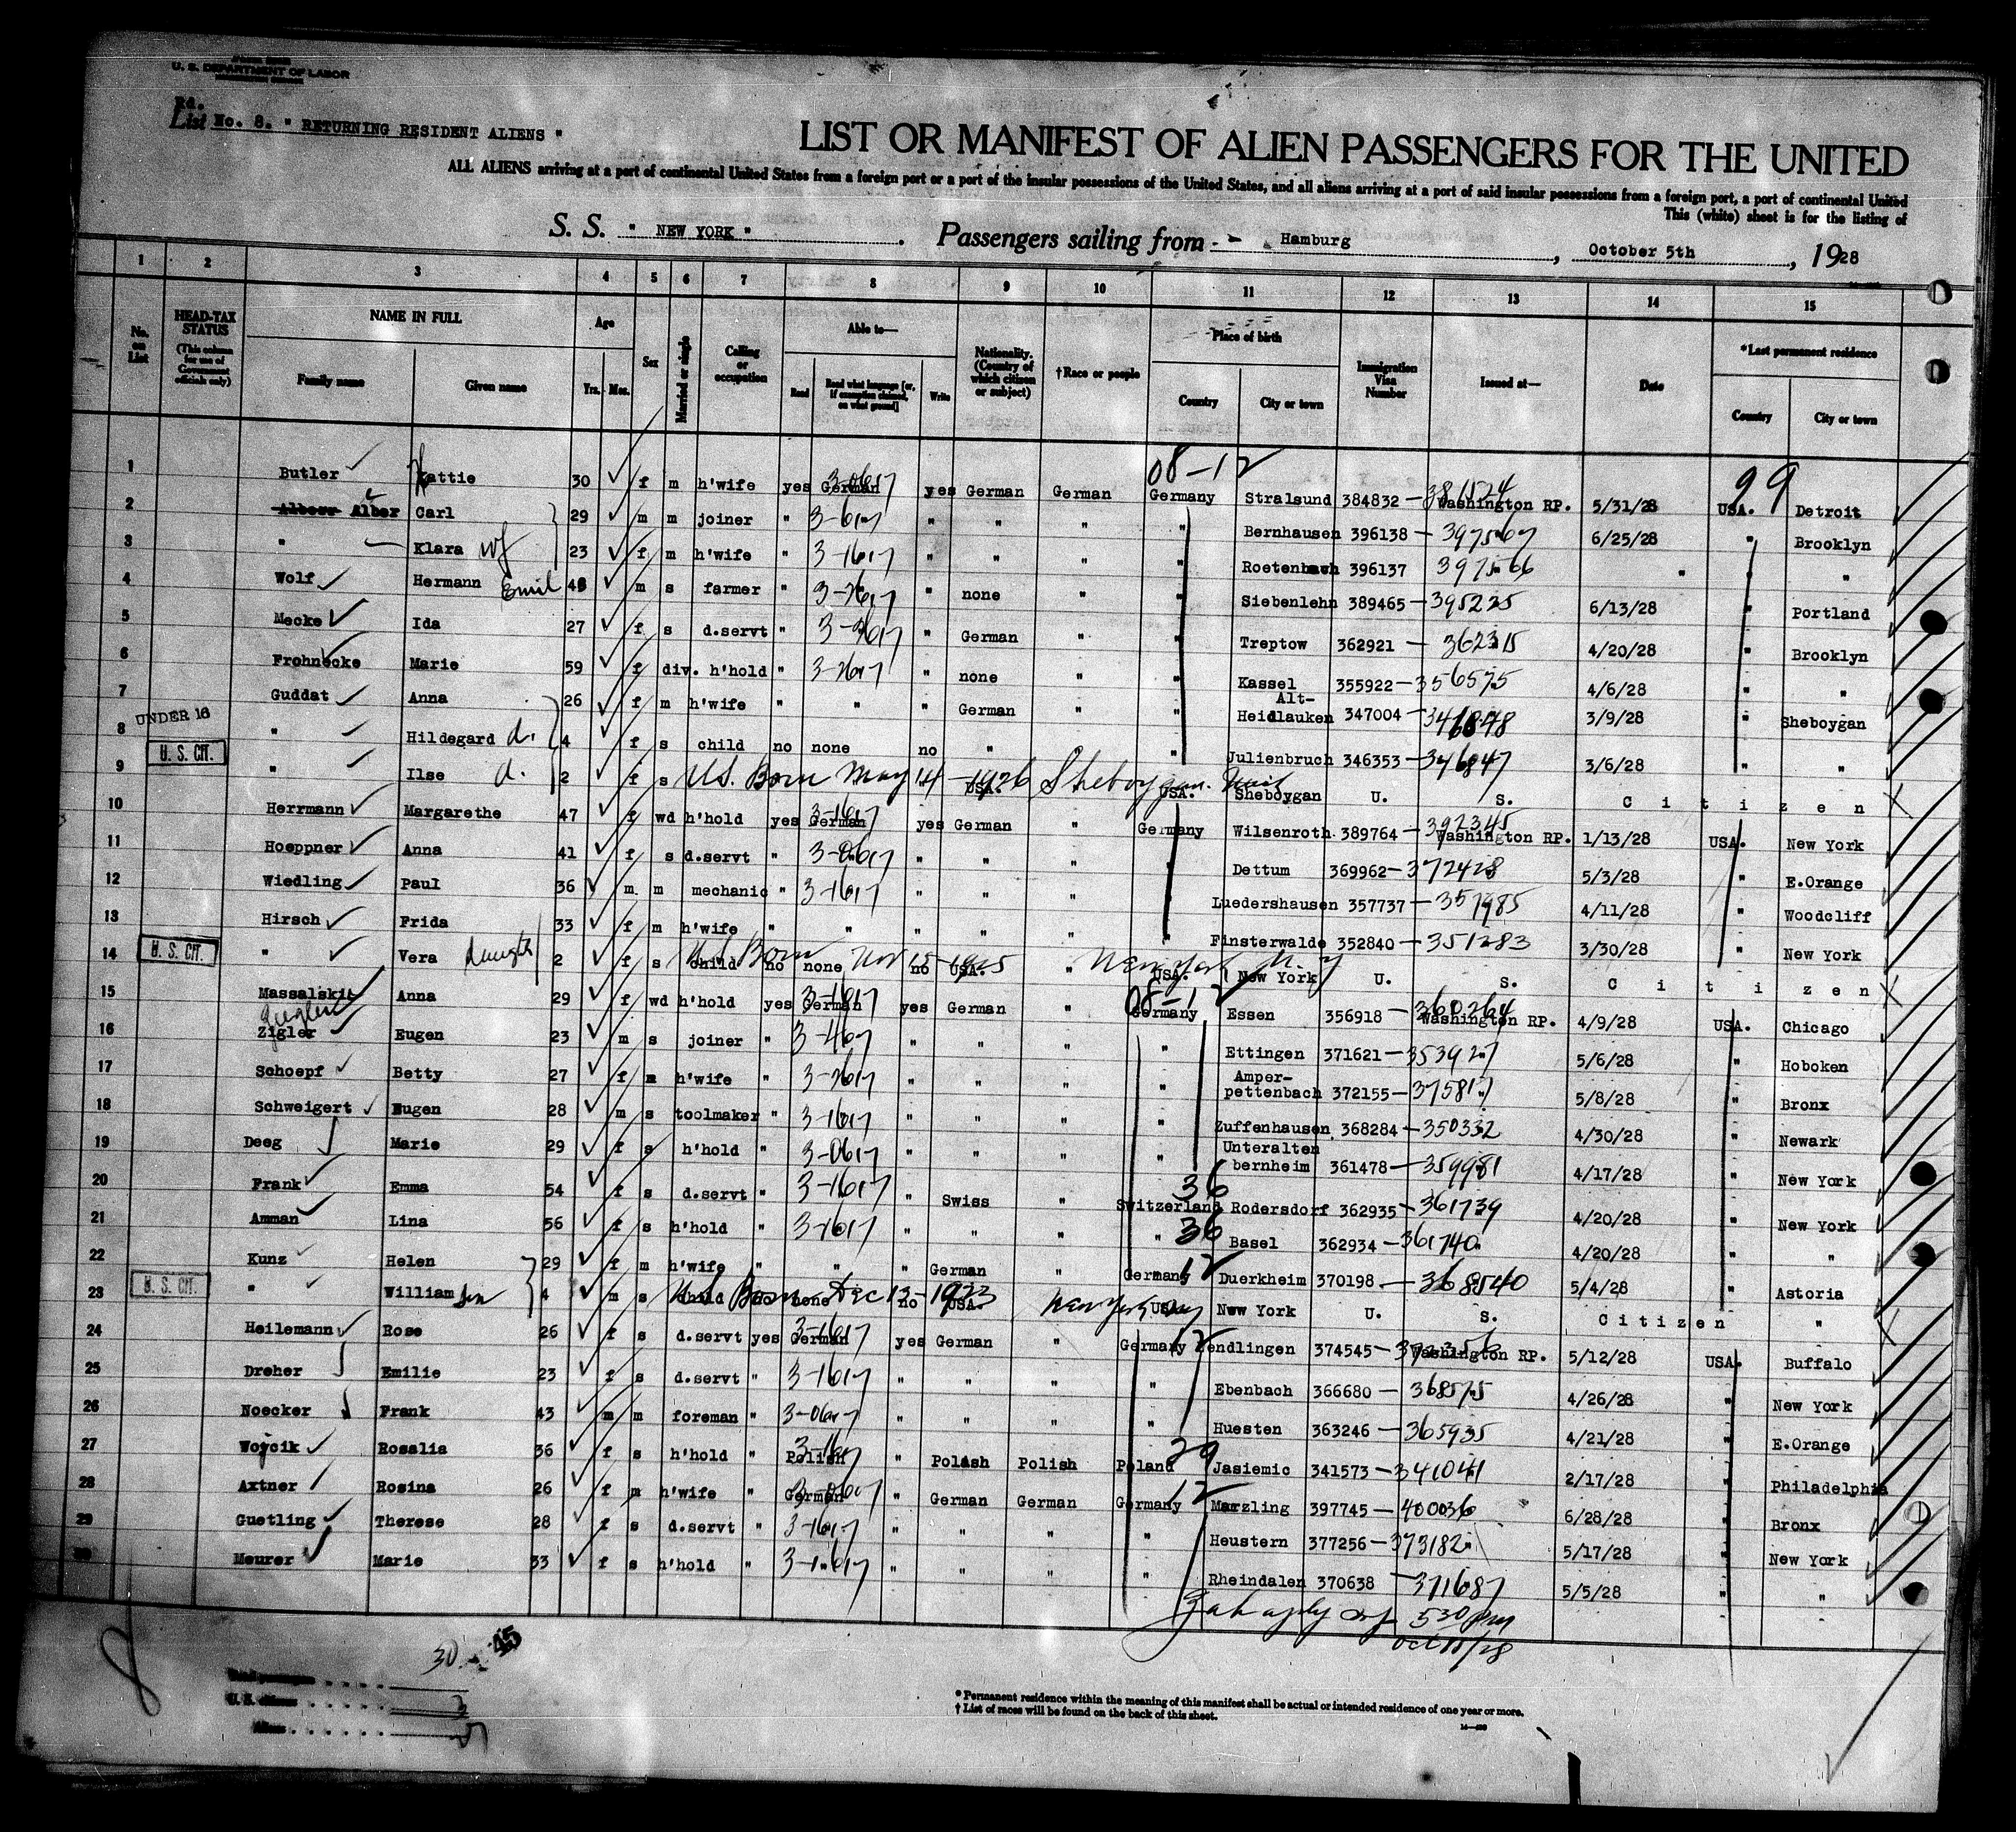 U. S. DEPARTMENT OF LABOR
Rd.
List No. 8. " RETURNING RESIDENT ALIENS "
LIST OR MANIFEST OF ALIEN PASSENGERS FOR THE UNITED
ALL ALIENS arriving at a port of continental United States from a foreign port or a port of the insular possessions of the United States, and all aliens arriving at a port of said insular possessions from a foreign port, a port of continental United
This (white) sheet is for the listing of
S. S. " NEW YORK " . Passengers sailing from - Hamburg , October 5th , 1928
1 2 3 4 5 6 7 8 9 10 11 12 13 14 15
No. on List
HEAD-TAX STATUS (This column for use of Government officials only)
NAME IN FULL
Family name Given name
Age
Yrs. Mos.
Sex
Married or single
Calling or occupation
Able to—
Read Read what language [or, if exemption claimed, on what ground] Write
Nationality. (Country of which citizen or subject)
†Race or people
Place of birth
Country City or town
Immigration Visa Number
Issued at—
Date
*Last permanent residence
Country City or town
08-12 99
1 Butler Kattie 30 f m h'wife yes German yes German German Germany Stralsund 384832 - Washington RP. 5/31/28 USA. Detroit
2 Alber Carl 29 m m joiner " 3-617 " " " " Bernhausen 396138 - 397567 6/25/28 " Brooklyn
3 " Klara wf 23 f m h'wife " 3-1617 " " " " Roetenbach 396137 397566 " " "
4 Wolf Hermann Emil 48 m s farmer " 3-2617 " none " " Siebenlehn 389465 - 395225 6/13/28 " Portland
5 Mecke Ida 27 f s d.servt " 3-3617 " German " " Treptow 362921 - 362315 4/20/28 " Brooklyn
6 Frohnecke Marie 59 f div. h'hold " 3-2617 " none " " Kassel 355922 - 356575 4/6/28 " "
7 Guddat Anna 26 f m h'wife " " " German " " Alt-Heidlauken 347004 - 346848 3/9/28 " Sheboygan
UNDER 16
8 " Hildegard d. 4 f s child no none no " " Julienbruch 346353 - 346847 3/6/28 " "
U. S. CIT.
9 " Ilse d. 2 f s U.S. Born May 14 - 1926 USA. Sheboygan. Wis USA. Sheboygan U. S. Citizen X
10 Herrmann Margarethe 47 f wd h'hold yes German yes German " Germany Wilsenroth 389764 - 392345 Washington RP. 1/13/28 USA. New York
11 Hoeppner Anna 41 f s d.servt " 3-0617 " " " " Dettum 369962 - 372428 5/3/28 " E.Orange
12 Wiedling Paul 36 m m mechanic " 3-1617 " " " " Luedershausen 357737 - 357985 4/11/28 " Woodcliff
13 Hirsch Frida 33 f m h'wife " " " " " " Finsterwalde 352840 - 351283 3/30/28 " New York
U. S. CIT.
14 " Vera daught 2 f s child U.S. Born no none Nov 15 - 1925 no USA. " New York N. Y USA. New York U. S. Citizen X
08-12
15 Massalski Anna 29 f wd h'hold yes German yes German " Germany Essen 356918 - 360264 Washington RP. 4/9/28 USA. Chicago
16 Zigler Eugen 23 m s joiner " 3-4617 " " " " Ettingen 371621 - 353927 5/6/28 " Hoboken
17 Schoepf Betty 27 f m h'wife " 3-2617 " " " " Amper-pettenbach 372155 - 375817 5/8/28 " Bronx
18 Schweigert Eugen 28 m s toolmaker " 3-1617 " " " " Zuffenhausen 368284 - 350332 4/30/28 " Newark
19 Deeg Marie 29 f s h'hold " 3-0617 " " " " Unteralten bernheim 361478 - 359981 4/17/28 " New York
20 Frank Emma 54 f s d.servt " 3-1617 " Swiss " 36 Switzerland Rodersdorf 362935 - 361739 4/20/28 " New York
21 Amman Lina 56 f s h'hold " 3-1617 " " " " 36 Basel 362934 - 361740 4/20/28 " "
22 Kunz Helen 29 f m h'wife " " " German " Germany 12 Duerkheim 370198 - 368540 5/4/28 " Astoria
U. S. CIT.
23 " William son 4 m s child U.S. Born no none Dec 13 - 1923 no USA. New York USA New York U. S. Citizen " X
24 Heilemann Rose 26 f s d.servt yes German yes German " Germany 12 endlingen 374545 - Washington RP. 5/12/28 USA. Buffalo
25 Dreher Emilie 23 f s d.servt " 3-1617 " " " " Ebenbach 366680 - 368575 4/26/28 " New York
26 Noecker Frank 43 m m foreman " 3-0617 " " " " Huesten 363246 - 365935 4/21/28 " E.Orange
27 Wojcik Rosalia 36 f s h'hold " Polish " Polish Polish Poland 29 Jasiemic 341573 - 341041 2/17/28 " Philadelphia
28 Axtner Rosina 26 f m h'wife " German " German German Germany 12 Marzling 397745 - 400036 6/28/28 " Bronx
29 Guetling Therese 28 f s d.servt " 3-1617 " " " " Heustern 377256 - 373182 5/17/28 " New York
30 Meurer Marie 33 f s h'hold " 3-1617 " " " " Rheindalen 370638 - 371687 5/5/28 " "
5 30 pm
Oct /28
30 - 45
Total passengers . . . .
U. S. citizens . . . . . 3
Aliens . . . . . .
* Permanent residence within the meaning of this manifest shall be actual or intended residence of one year or more.
† List of races will be found on the back of this sheet.